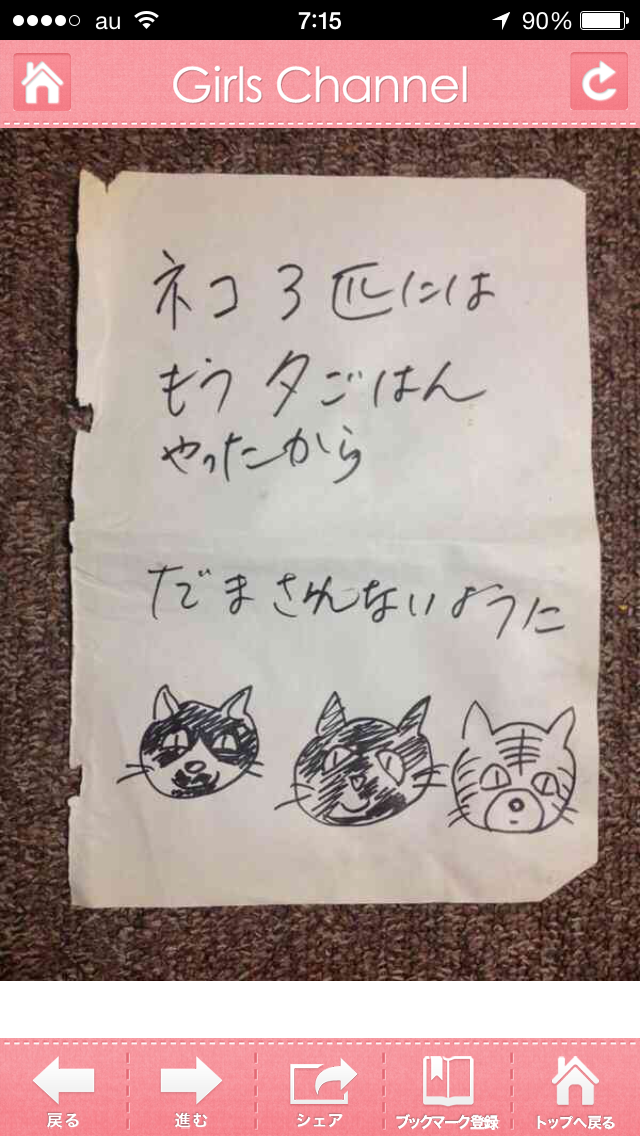 au 7:15 90%
Girls Channel
ネコ3匹には
もう夕ごはん
やったから
だまされんないように
戻る 進む シェア ブックマーク登録 トップへ戻る